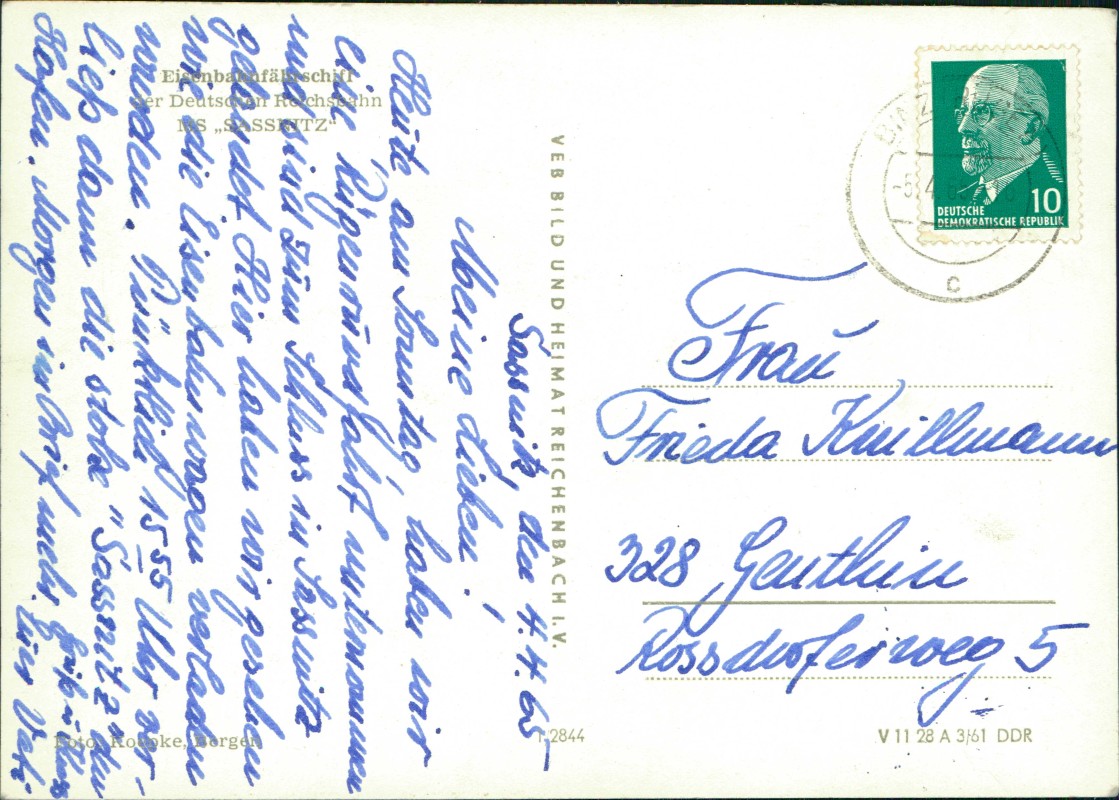 Eisenbahnfährschiff
der Deutschen Reichsbahn
MS „SASSNITZ“
Sassnitz, den 4.4.65
Meine Lieben!
Heute am Sonntag, haben wir
eine Rügenrundfahrt unternommen
und sind zum Schluss in Sassnitz
gelandet. Hier haben wir gesehen
wie die Eisenbahnwagen verladen
wurden. Pünktlich 15 55 Uhr ver-
ließ dann die stolze "Sassnitz" den
Hafen. Morgen in Binz mehr. Gruß u. Kuss
Euer Vati
Foto: Korpke, Bergen
VEB BILD UND HEIMAT REICHENBACH I. V.
BINZ
-5.4.65
c
10
DEUTSCHE
DEMOKRATISCHE REPUBLIK
Frau
Frieda Knillmann
328 Genthin
Rossdorferweg 5
2844
V 11 28 A 3/61 DDR